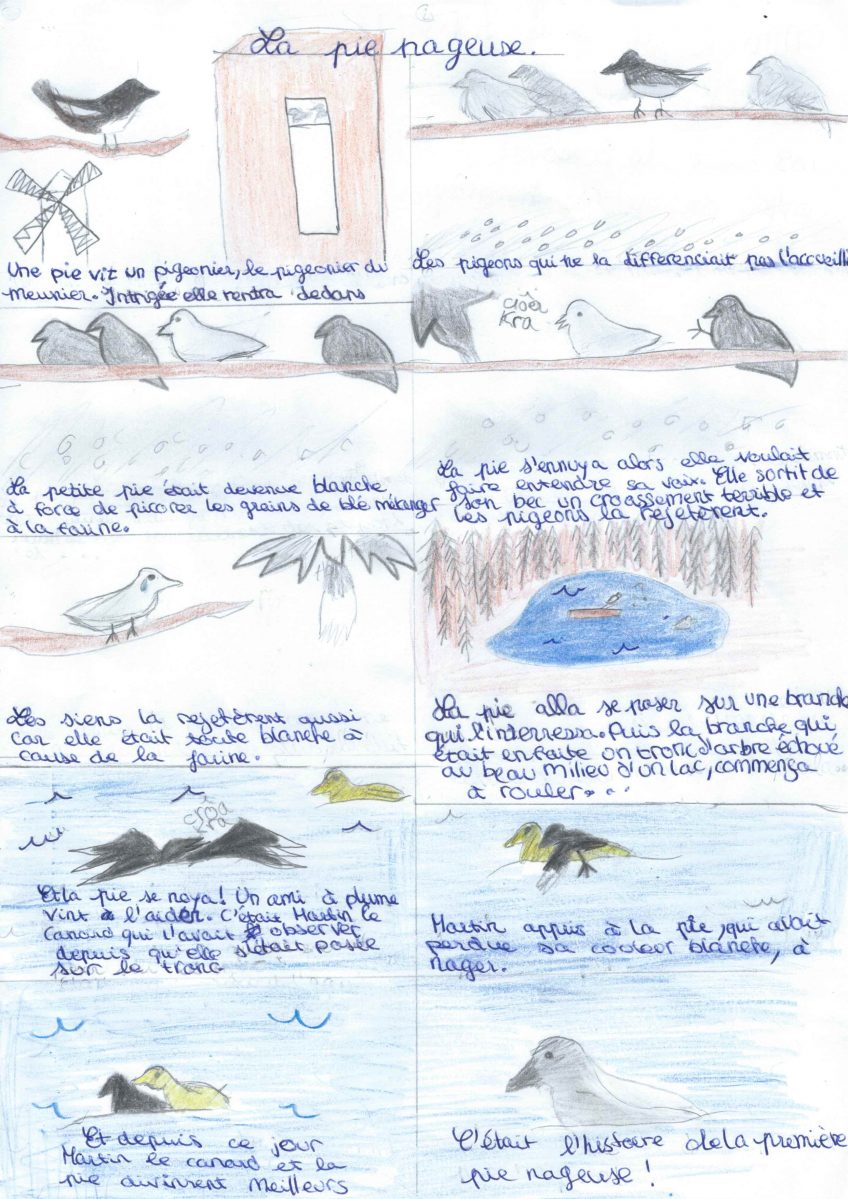 La pie nageuse.
Une pie vit un pigeonier, le pigeonier du
meunier. Intrigée elle rentra dedans
Les pigeons qui ne la differenciait pas l'accueill
La petite pie était devenue blanche
à force de picorer les grains de blé mélanger
à la farine.
croâ
Kra
La pie s'ennuya alors elle voulait
faire entendre sa voix. Elle sortit de
son bec un croassement terrible et
les pigeons la rejetèrent.
Les siens la rejetèrent aussi
car elle était toute blanche à
cause de la farine.
La pie alla se poser sur une branche
qui l'interressa. Puis la branche qui
était enfaite un tronc d'arbre échoué
au beau milieu d'un lac, commença
à rouler...
croa
kra
Et la pie se noya! Un ami à plume
vint à l'aider. C'était Martin le
canard qui l'avait observer
depuis qu'elle s'était posée
sur le tronc
Martin appris à la pie, qui avait
perdue sa couleur blanche, à
nager.
Et depuis ce jour
Martin le canard et la
pie divinrent meilleurs
C'était l'histoire de la première
pie nageuse!